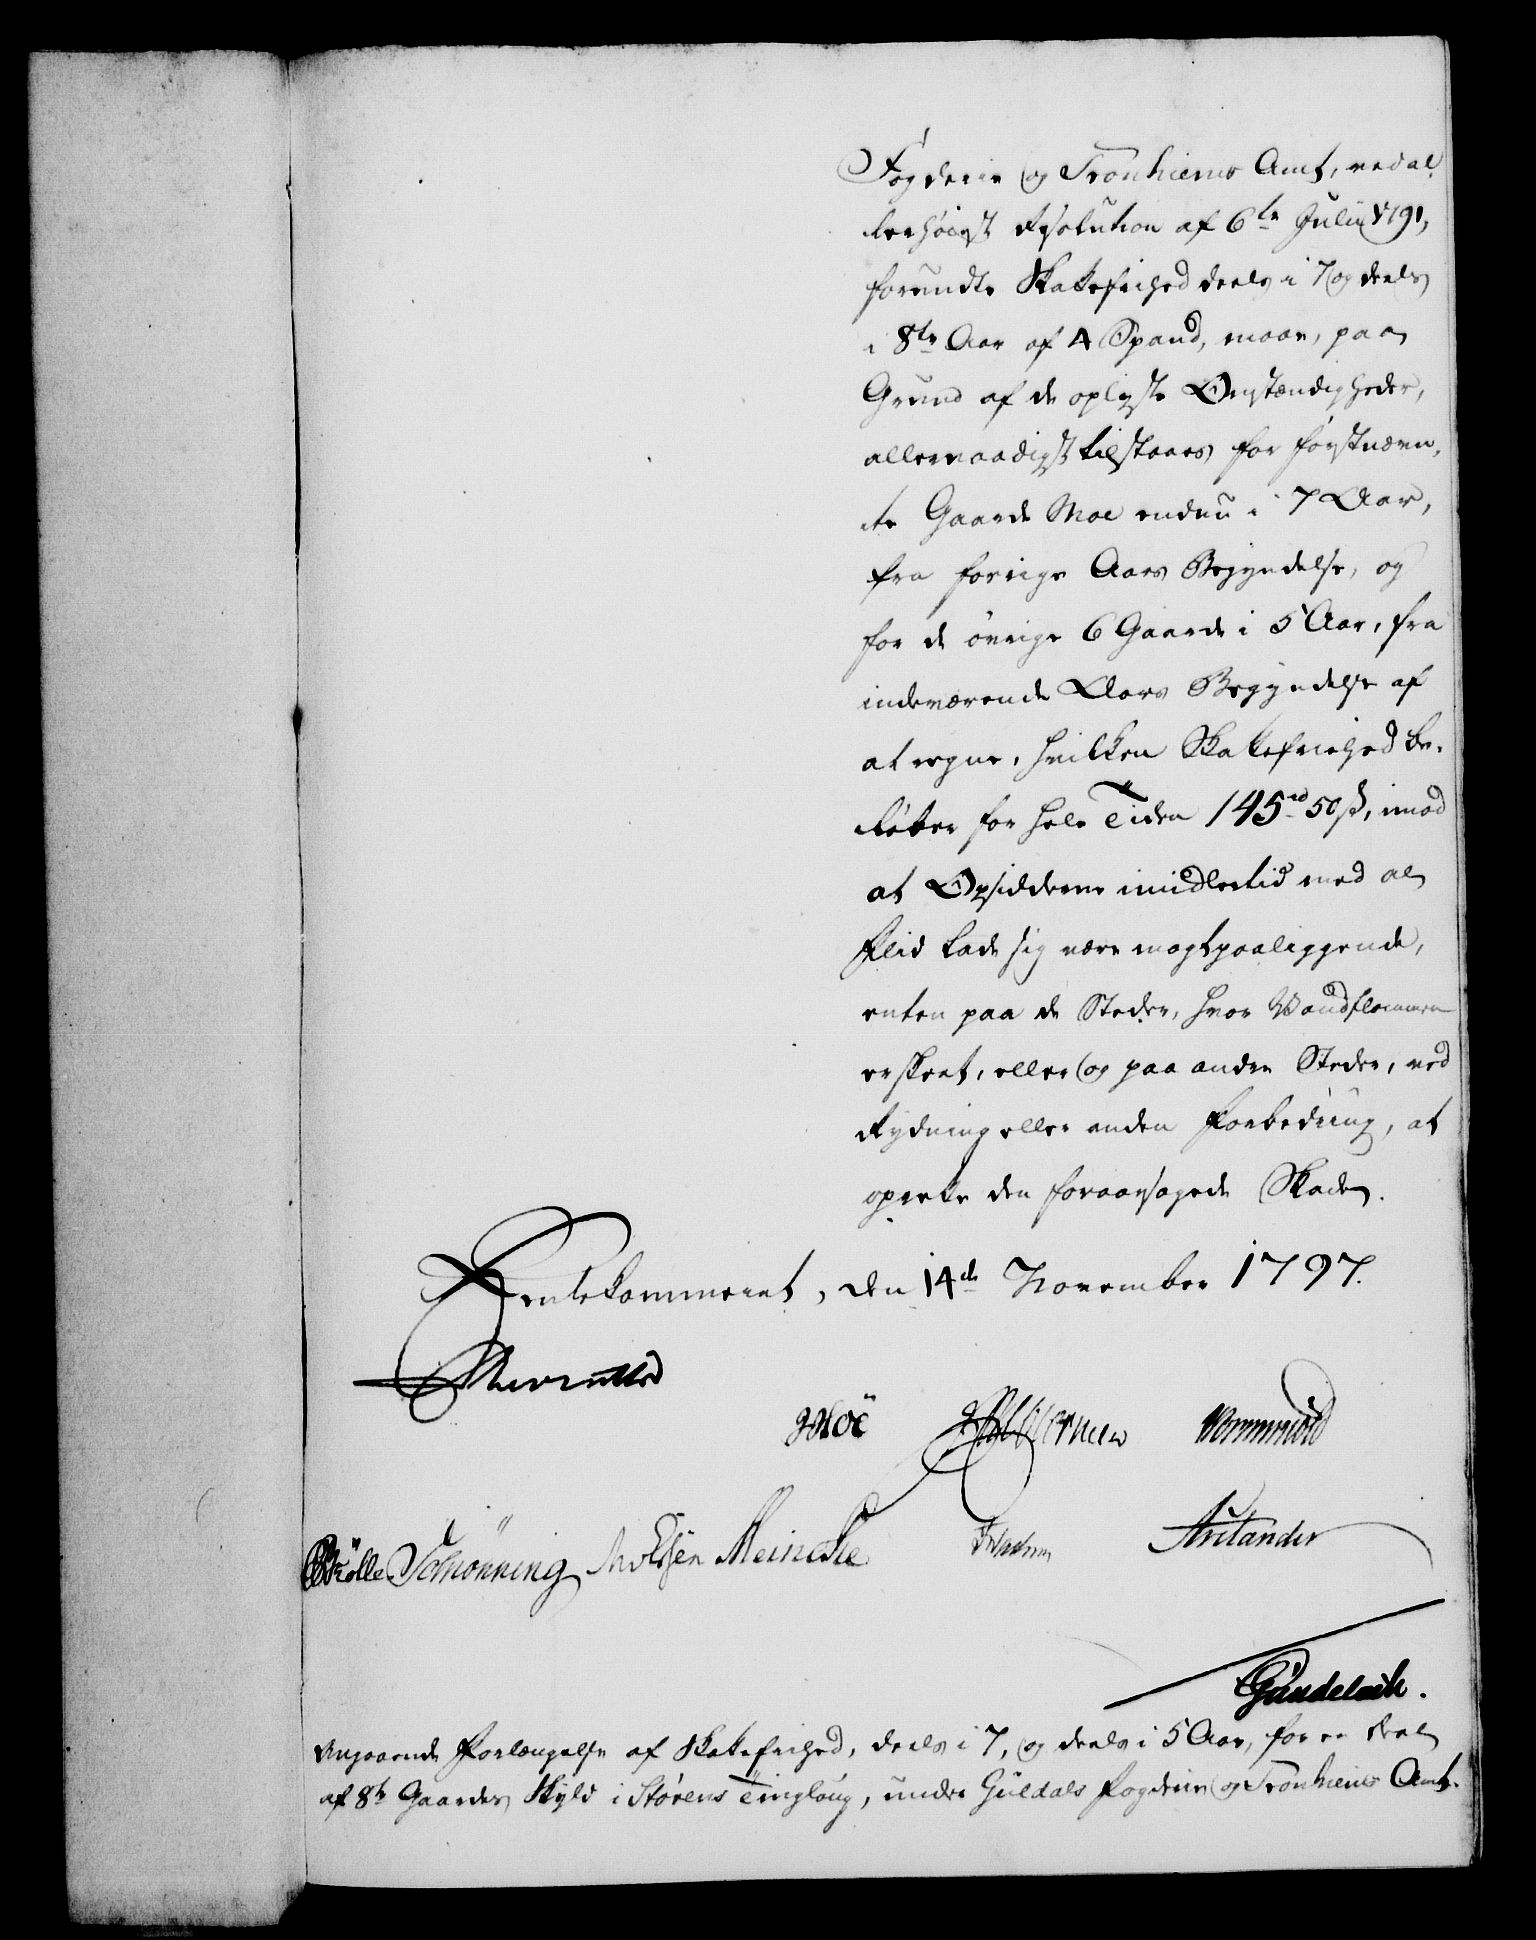 Fogderie og Tronhiems Amt, ved al¬
lerhøiest Resolution af 6te Julii 1791,
forundte Skatefrihed deels i 7 og deels
i 8te Aar af 4 Spand, maae, paa
Grund af de oplyste Omstændigheder,
allernaadigst tilstaaes for førstnævn¬
te Gaard Moe endnu i 7 Aar,
fra forrige Aars Begyndelse, og
for de øvrige 6 Gaarde i 5 Aar, fra
indeværende Aars Begyndelse af
at regne, hvilken Skatefriehed be¬
løber for hele Tiden 145rd 50 s, imod
at Opsidderne imidlertid med al
Flid lade sig være magtpaaliggende,
enten paa de Steder, hvor Vandflommen
er skeet, eller og paa andre Steder, ved
Rydning eller anden Forbedring, at
oprette den foraarsagede Skade.
Rentekammeret, den 14de November 1797.
Reventlow
Moe Wormskiold
Skølle Schønning Meincke Arctander
Gundelach.
Angaaende Forlængelse af Skatefrihed, deels i 7, og deels i 5 Aar, for en Deel
af 8te Gaardes Skyld i Størens Tinglaug, under Guldals Fogderie og Tronhiems Amt.